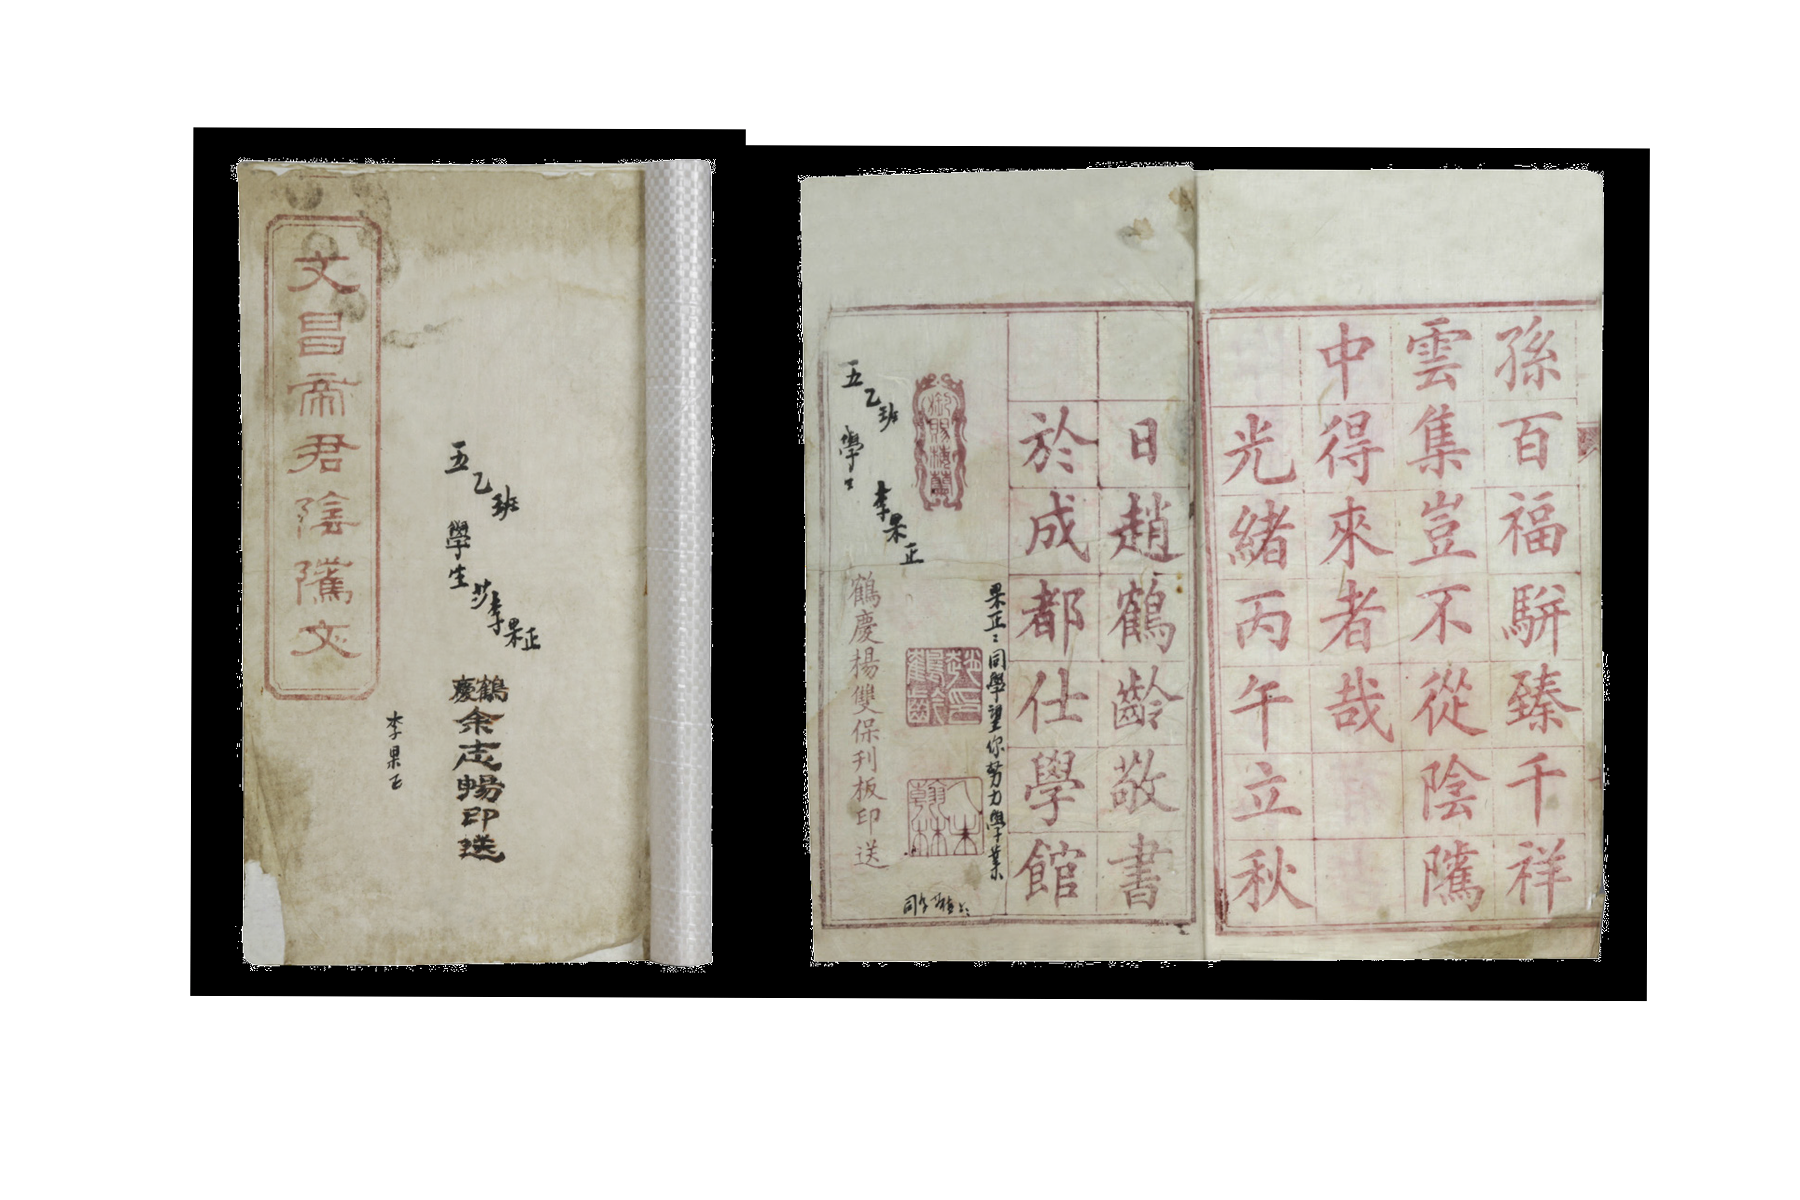 文昌帝君陰隲文
五乙班
學生
李果正
鶴慶
余志暢印送
李果正
孫百福駢臻千祥
雲集豈不從陰隲
中得來者哉
光緒丙午立秋
日趙鶴齡敬書
於成都仕學館
果正：同學望你努力學業
御賜
趙印鶴齡
翰林
五乙班
學生
李果正
鶴慶楊雙保刊板印送